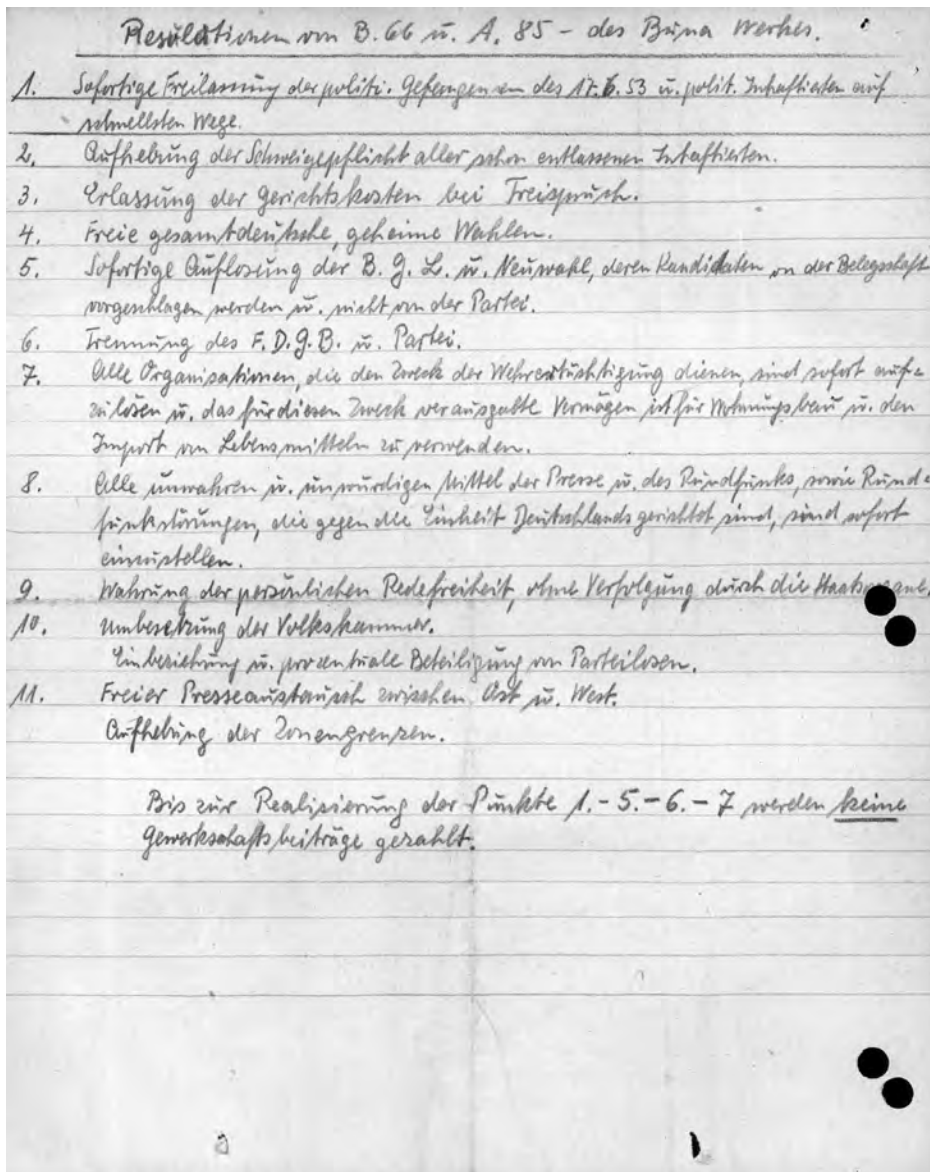 Resolutionen von B. 66 u. A. 85 – des Buna Werkes.
1. Sofortige Freilassung der politi. Gefangenen des 17. 6. 53 u. polit. Inhaftierten auf
schnellsten Wege.
2. Aufhebung der Schweigepflicht aller schon entlassenen Inhaftierten.
3. Erlassung der Gerichtskosten bei Freispruch.
4. Freie gesamtdeutsche, geheime Wahlen.
5. Sofortige Auflosung der B. G. L. u. Neuwahl, deren Kandidaten von der Belegschaft
vorgeschlagen werden u. nicht von der Partei.
6. Trennung des F. D. G. B. u. Partei.
7. Alle Organisationen, die den Zweck der Wehrertüchtigung dienen, sind sofort auf=
zulösen u. das für diesen Zweck verausgabte Vermögen ist für Wohnungsbau u. den
Import von Lebensmitteln zu verwenden.
8. Alle unwahren u. unwürdigen Mittel der Presse u. des Rundfunks, sowie Rund=
funkstörungen, die gegen die Einheit Deutschlands gerichtet sind, sind sofort
einzustellen.
9. Wahrung der persönlichen Redefreiheit, ohne Verfolgung durch die
10. Umbesetzung der Volkskammer.
Einbeziehung u. prozentuale Beteiligung von Parteilosen.
11. Freier Presseaustausch zwischen Ost u. West.
Aufhebung der Zonengrenzen.
Bis zur Realisierung der Punkte 1. – 5. – 6. – 7 werden keine
Gewerkschaftsbeiträge gezahlt.